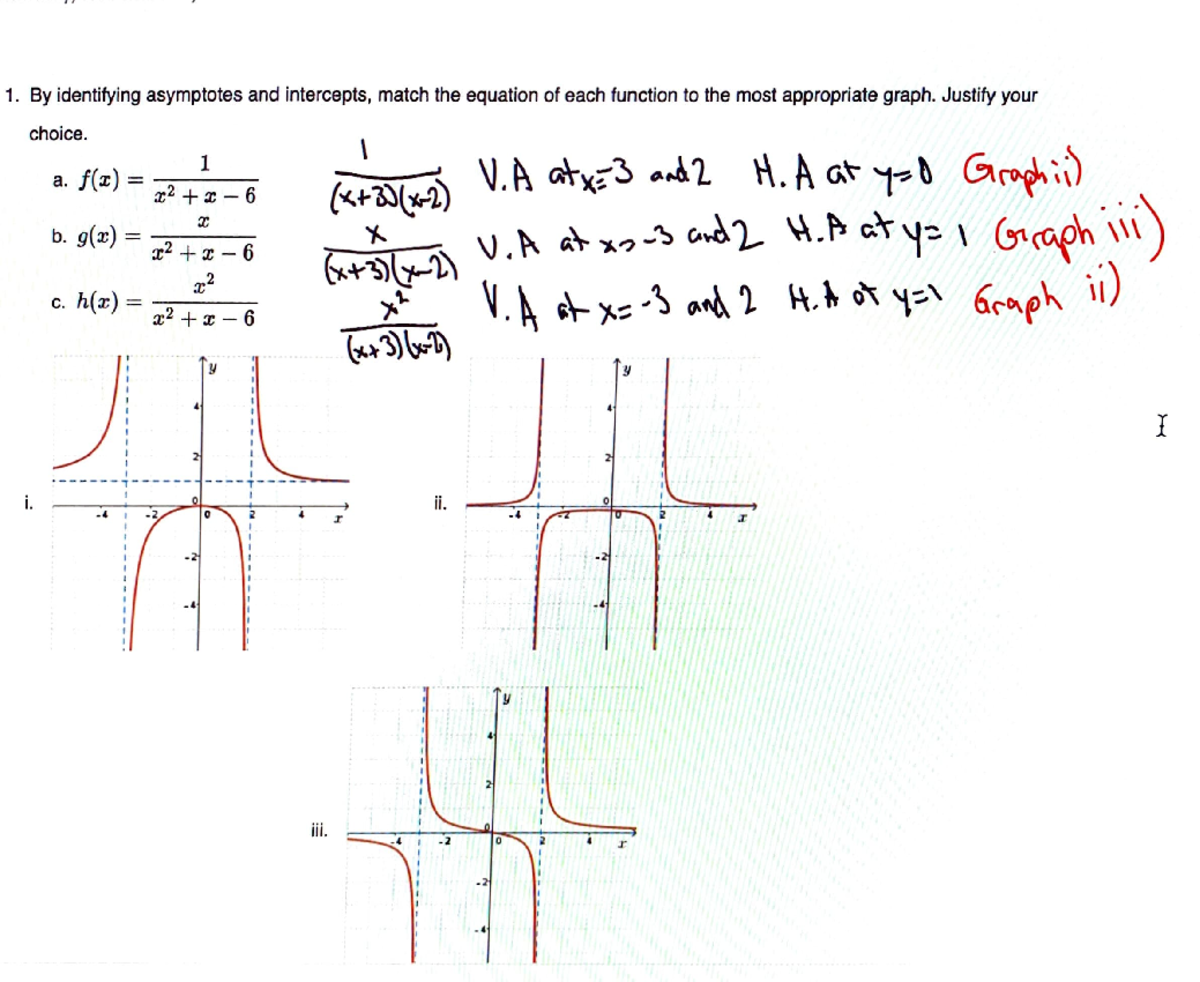 1. By identifying asymptotes and intercepts, match the equation of each function to the most appropriate graph. Justify your
choice.
a. f(x) = 1/(x² + x − 6) 1/((x+3)(x-2)) V.A at x=-3 and 2 H.A at y=0 Graph ii)
b. g(x) = x/(x² + x − 6) x/((x+3)(x-2)) V.A at x=-3 and 2 H.A at y=1 Graph iii)
c. h(x) = x²/(x² + x − 6) x²/((x+3)(x-2)) V.A at x=-3 and 2 H.A at y=1 Graph ii)
i.
y
4
2
0
-4 -2 0 2 4 x
-2
-4
ii.
y
4
2
0
-4 -2 0 2 4 x
-2
-4
iii.
y
4
2
0
-4 -2 0 2 4 x
-2
-4